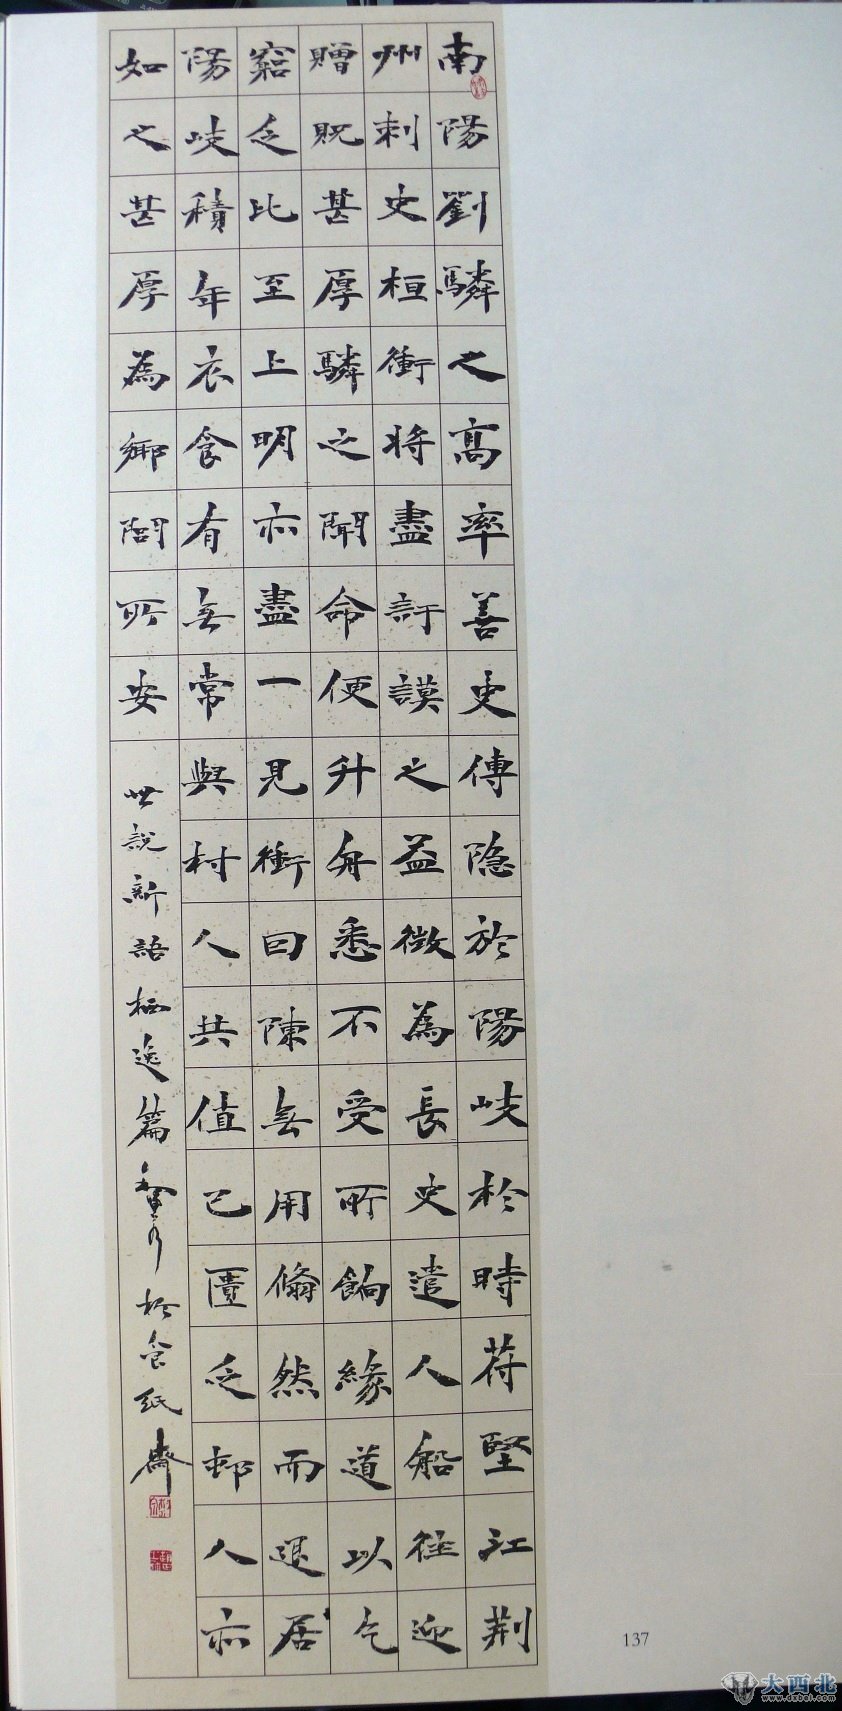 南陽劉驎之高率善史傳隐於陽岐於時苻堅江荆
州刺史桓衝将盡訏謨之益徵為長史遣人船往迎
贈貺甚厚驎之聞命便升舟悉不受所餉緣道以乞
窮乏比至上明亦盡一見衝曰陳無用翛然而退居
陽岐積年衣食有無常與村人共值己匱乏邨人亦
如之甚厚為鄉閭所安
世説新語栖逸篇
於食紙齋
137
大西北
www.dxbei.com